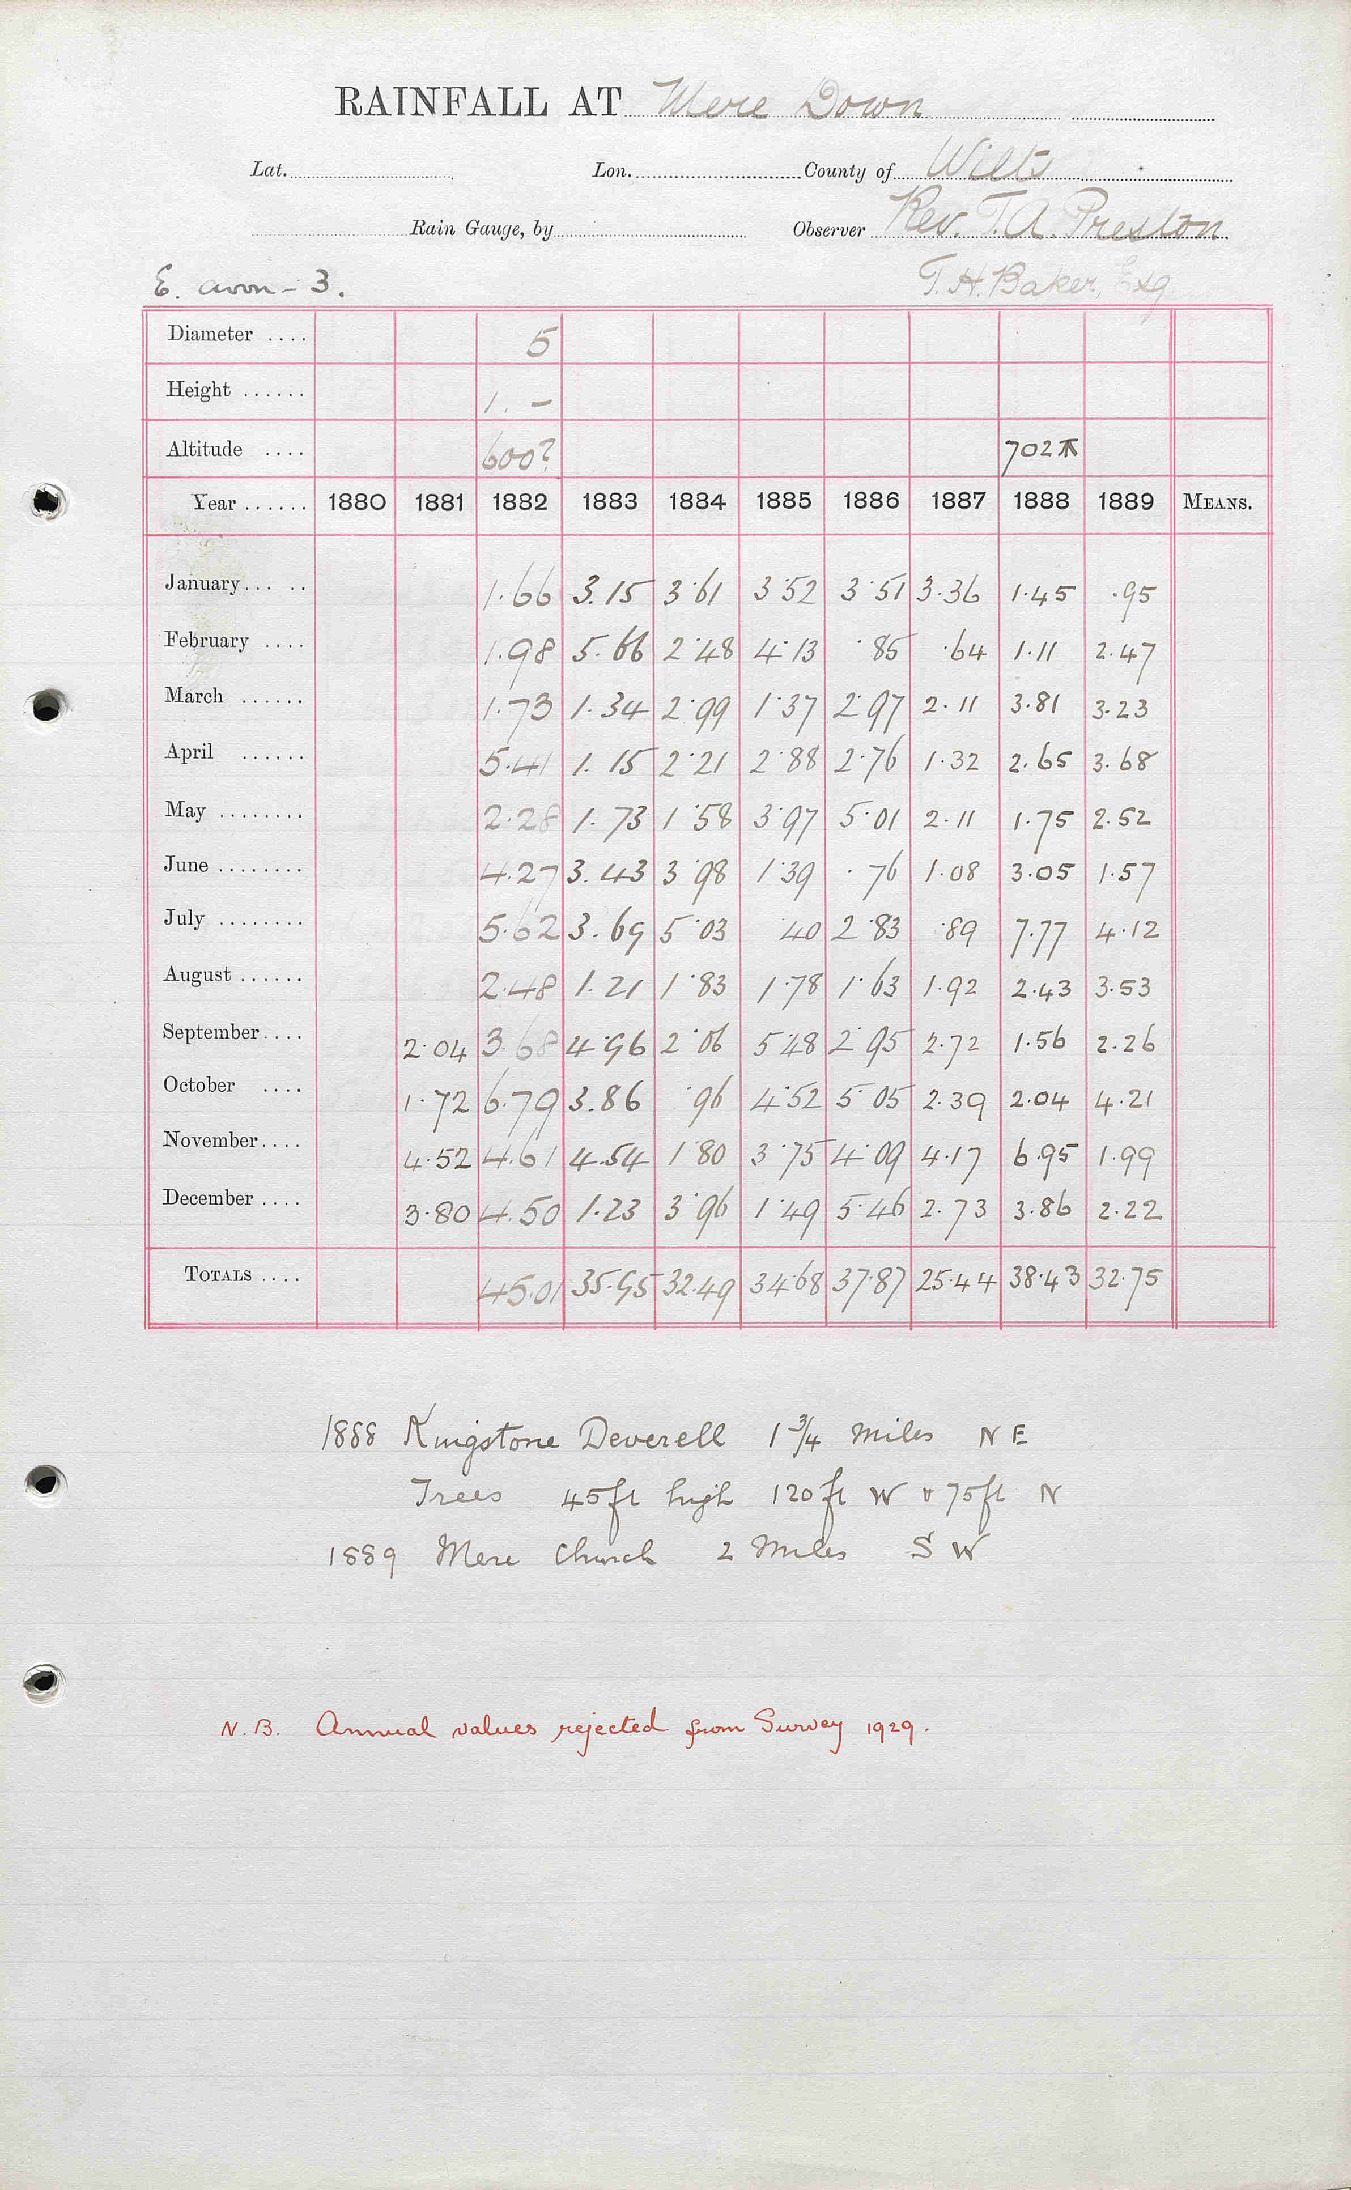 RAINFALL AT Mere Down
Lat. Lon. County of Wilts
Rain Gauge, by Observer Rev. T. A. Preston
E. avon - 3. T. H. Baker, Esq
Diameter .... 5
Height ...... 1. -
Altitude .... 600? 702
Year ...... 1880 1881 1882 1883 1884 1885 1886 1887 1888 1889 MEANS.
January... .. 1.66 3.15 3.61 3.52 3.51 3.36 1.45 .95
February .... 1.98 5.66 2.48 4.13 .85 .64 1.11 2.47
March ...... 1.73 1.34 2.99 1.37 2.97 2.11 3.81 3.23
April ...... 5.41 1.15 2.21 2.88 2.76 1.32 2.65 3.68
May ........ 2.28 1.73 1.58 3.97 5.01 2.11 1.75 2.52
June ........ 4.27 3.43 3.98 1.39 .76 1.08 3.05 1.57
July ........ 5.62 3.69 5.03 .40 2.83 .89 7.77 4.12
August ...... 2.48 1.21 1.83 1.78 1.63 1.92 2.43 3.53
September.... 2.04 3.68 4.96 2.06 5.48 2.95 2.72 1.56 2.26
October .... 1.72 6.79 3.86 .96 4.52 5.05 2.39 2.04 4.21
November.... 4.52 4.61 4.54 1.80 3.75 4.09 4.17 6.95 1.99
December .... 3.80 4.50 1.23 3.96 1.49 5.46 2.73 3.86 2.22
TOTALS .... 45.01 35.95 32.49 34.68 37.87 25.44 38.43 32.75
1888 Kingstone Deverell 1 3/4 Miles N E
Trees 45ft high 120ft W & 75ft N
1889 Mere Church 2 Miles S W
N.B. Annual values rejected from Survey 1929.